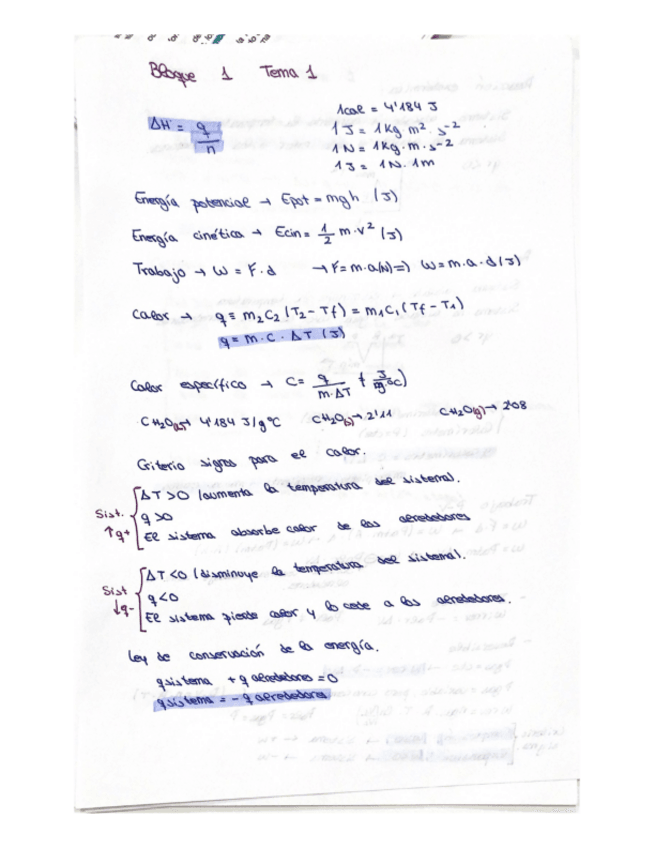 Bloque 1 Tema 1
ΔH = q/n
1cal = 4'184 J
1 J = 1Kg m² . s⁻²
1 N = 1Kg . m . s⁻²
1 J = 1N . 1m
Energía potencial → Epot = mgh (J)
Energía cinética → Ecin = 1/2 m · v² (J)
Trabajo → W = F · d → F = m·a(N) => W = m·a·d (J)
Calor → q = m₂C₂ (T₂ - Tf) = m₁C₁ (Tf - T₁)
q = m · C · ΔT (J)
Calor específico → C = q/m·ΔT (J/gºC)
CH₂O(l) → 4'184 J/gºC CH₂O(s) → 2'11 CH₂O(g) → 2'08
Criterio signos para el calor.
Sist. ↑q+
ΔT > 0 (aumenta la temperatura del sistema).
q > 0
El sistema absorbe calor de los alrededores
Sist ↓q-
ΔT < 0 (disminuye la temperatura del sistema).
q < 0
El sistema pierde calor y lo cede a los alrededores.
Ley de conservación de la energía.
q sistema + q alrededores = 0
q sistema = - q alrededores